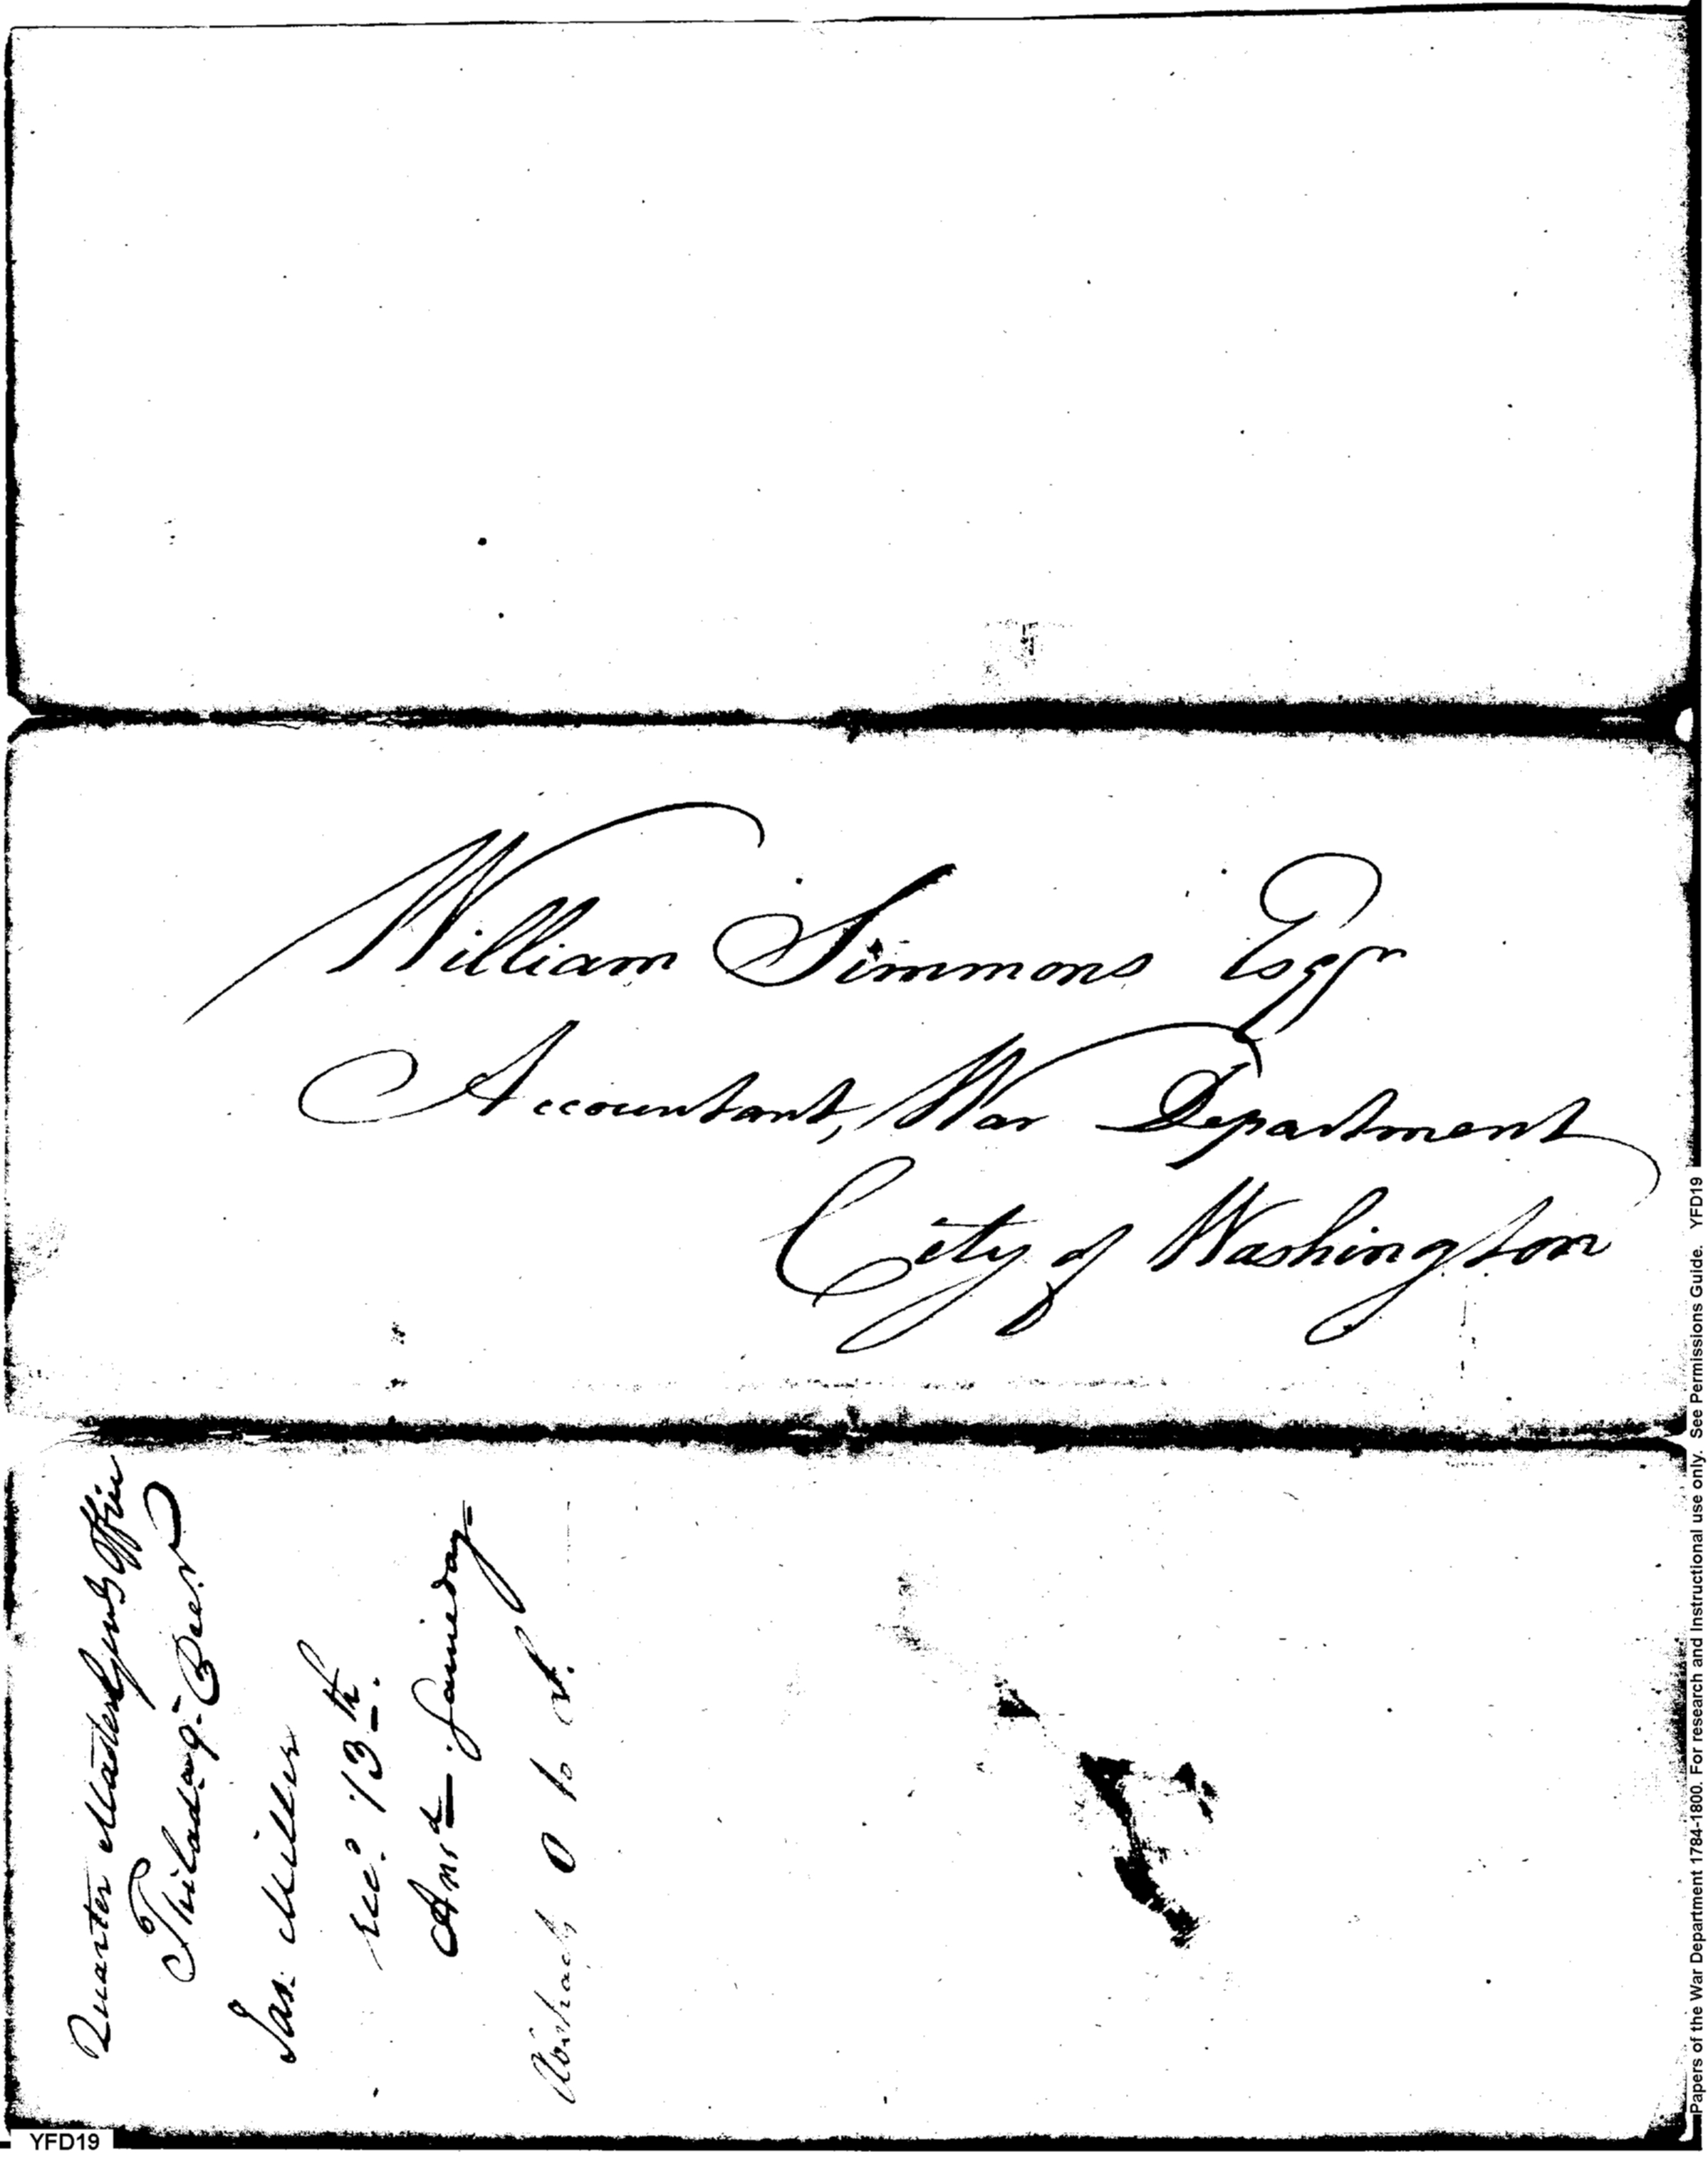 William Simmons Esqr
Accountant, War Department
City of Washington
Quarter Master Genls Office
Philada 9. Decr
Jas. Miller
rec. 13th.
Ansd same day
Abstracts O to
Papers of the War Department 1784-1800. For research and Instructional use only. See Permissions Guide. YFD19
YFD19